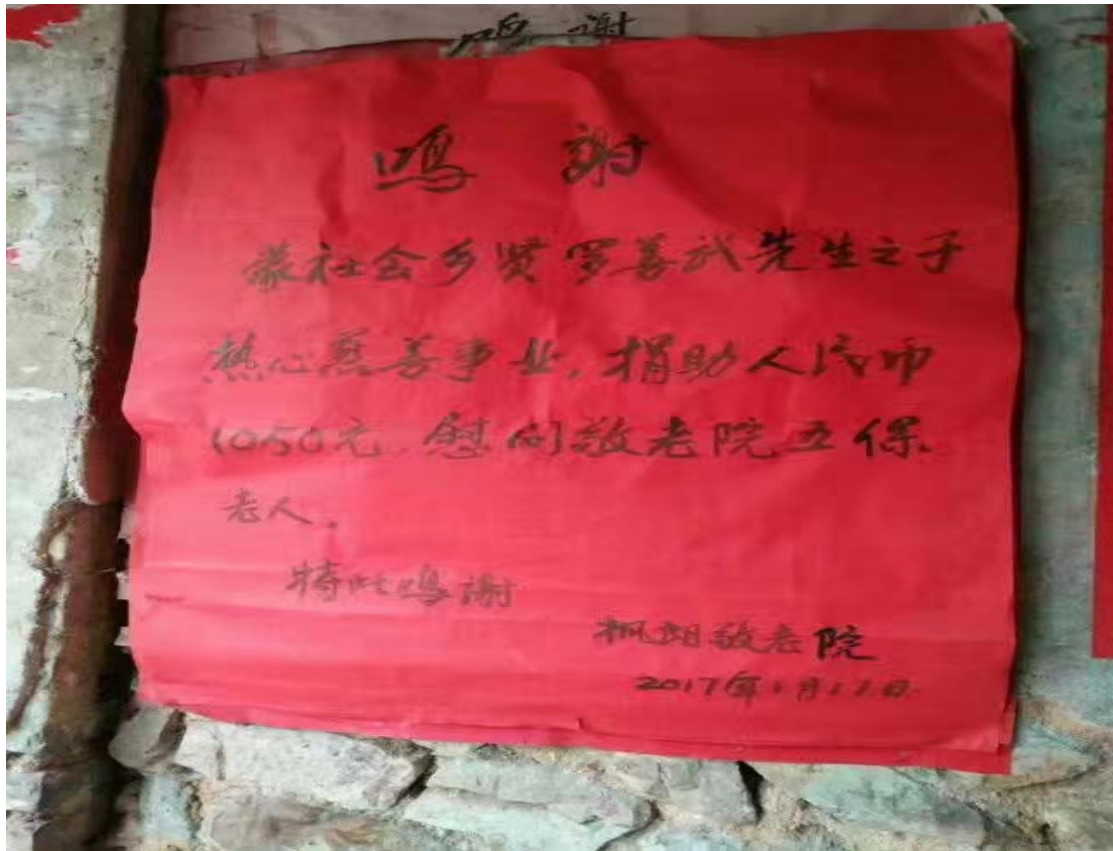 鸣 谢
鸣 謝
蒙社会乡贤罗善武先生之子
热心慈善事业，捐助人民币
1050元，慰问敬老院五保
老人。
特此鸣谢
枫朗敬老院
2017年1月17日